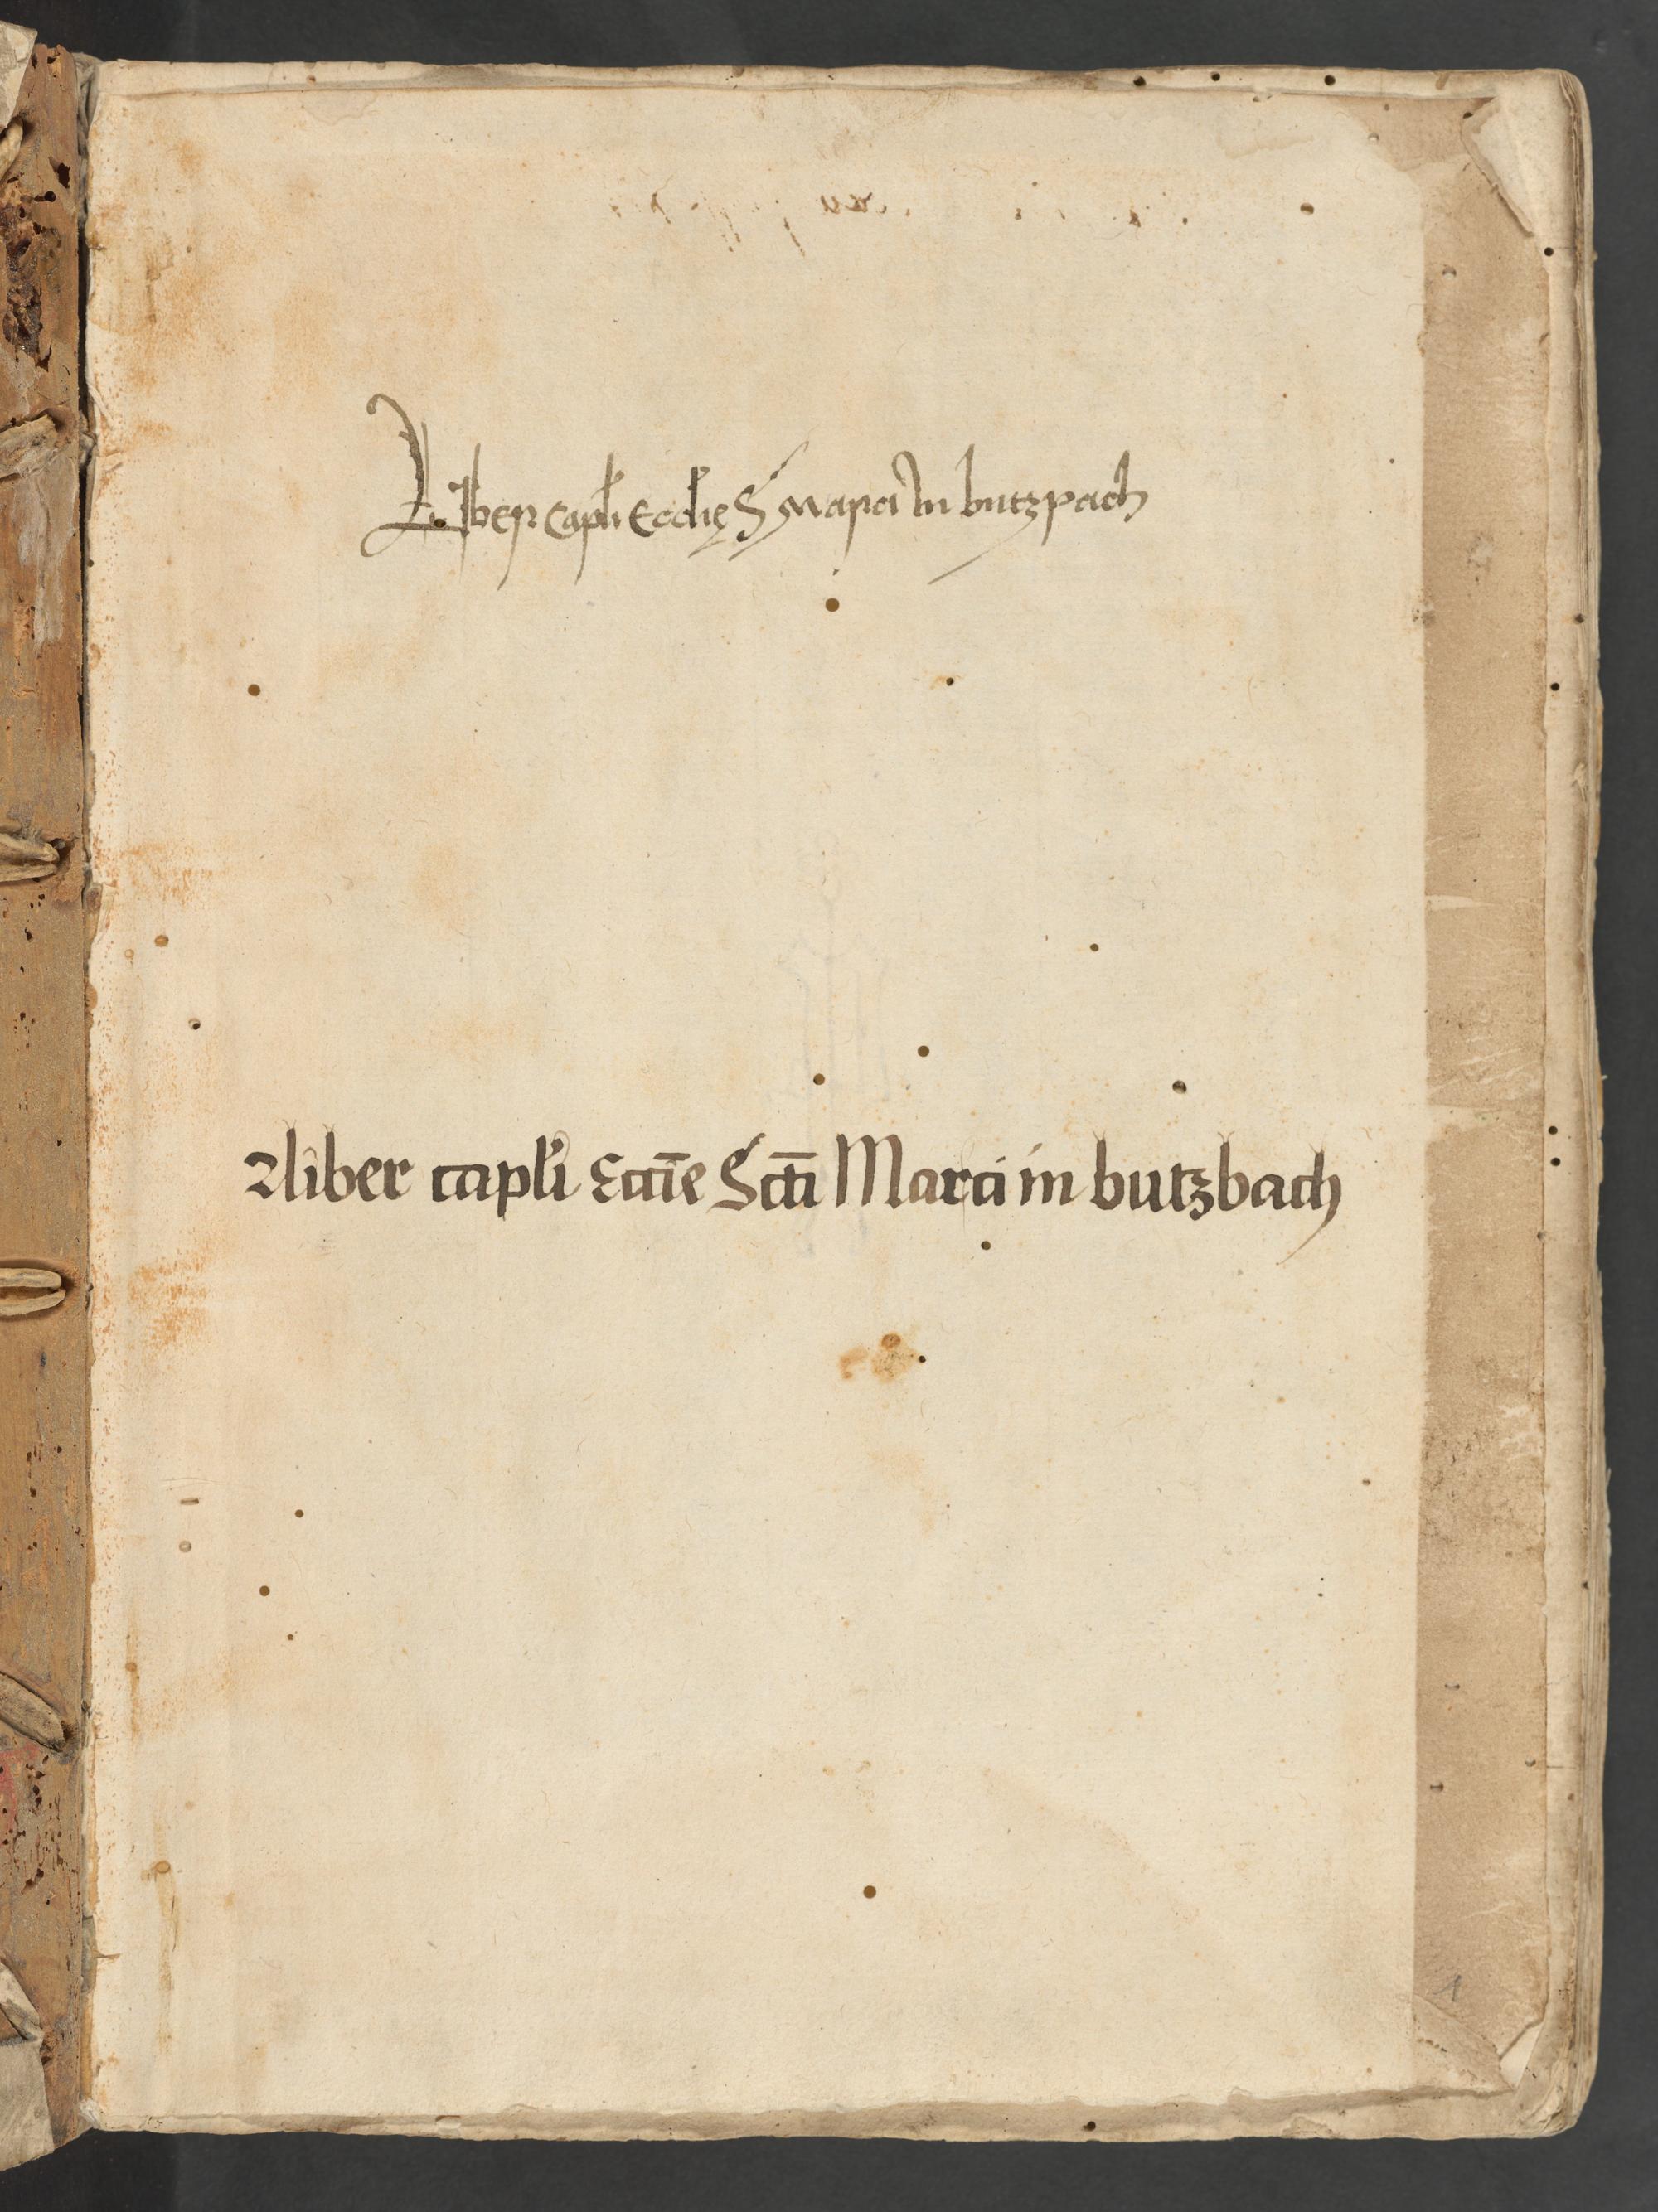 Liber capłi Eccłię S Marci In butzpach
Liber capłi Eccīe Sctī Marci in butzbach
1